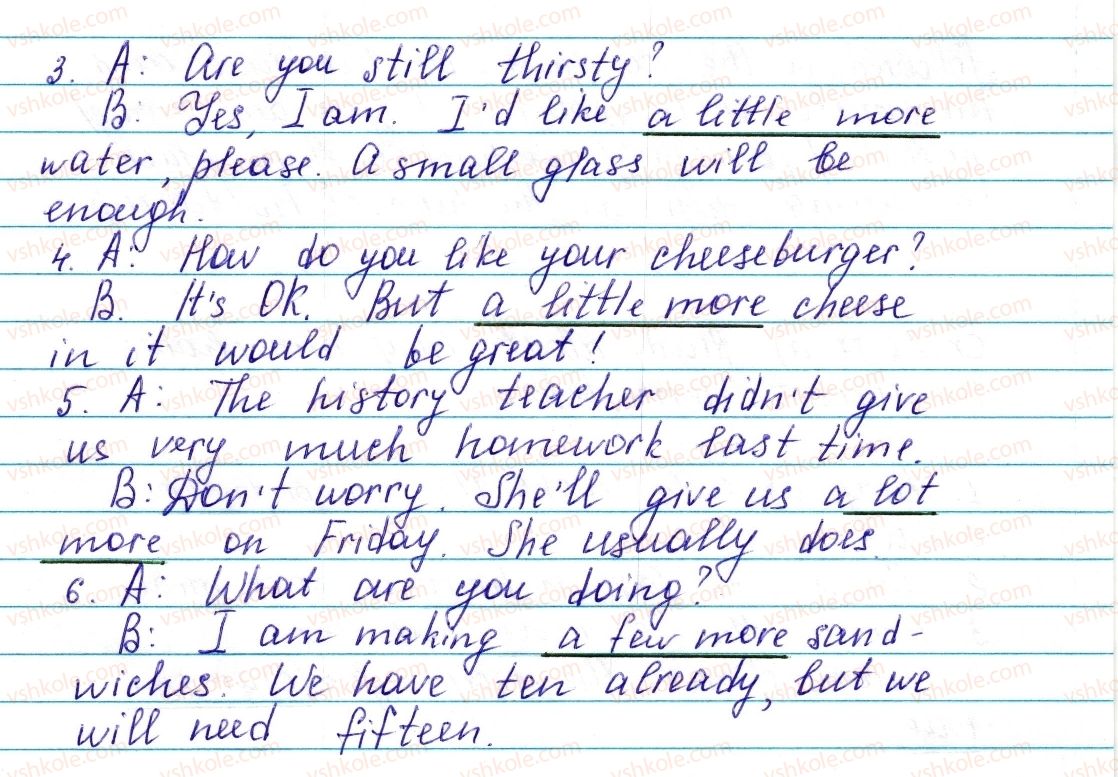 3. A: Are you still thirsty?
B: Yes, I am. I'd like a little more
water, please. A small glass will be
enough.
4. A: How do you like your cheeseburger?
B. It's OK. But a little more cheese
in it would be great!
5. A: The history teacher didn't give
us very much homework last time.
B: Don't worry. She'll give us a lot
more on Friday. She usually does.
6. A: What are you doing?
B: I am making a few more sand-
wiches. We have ten already, but we
will need fifteen.
vshkole.com